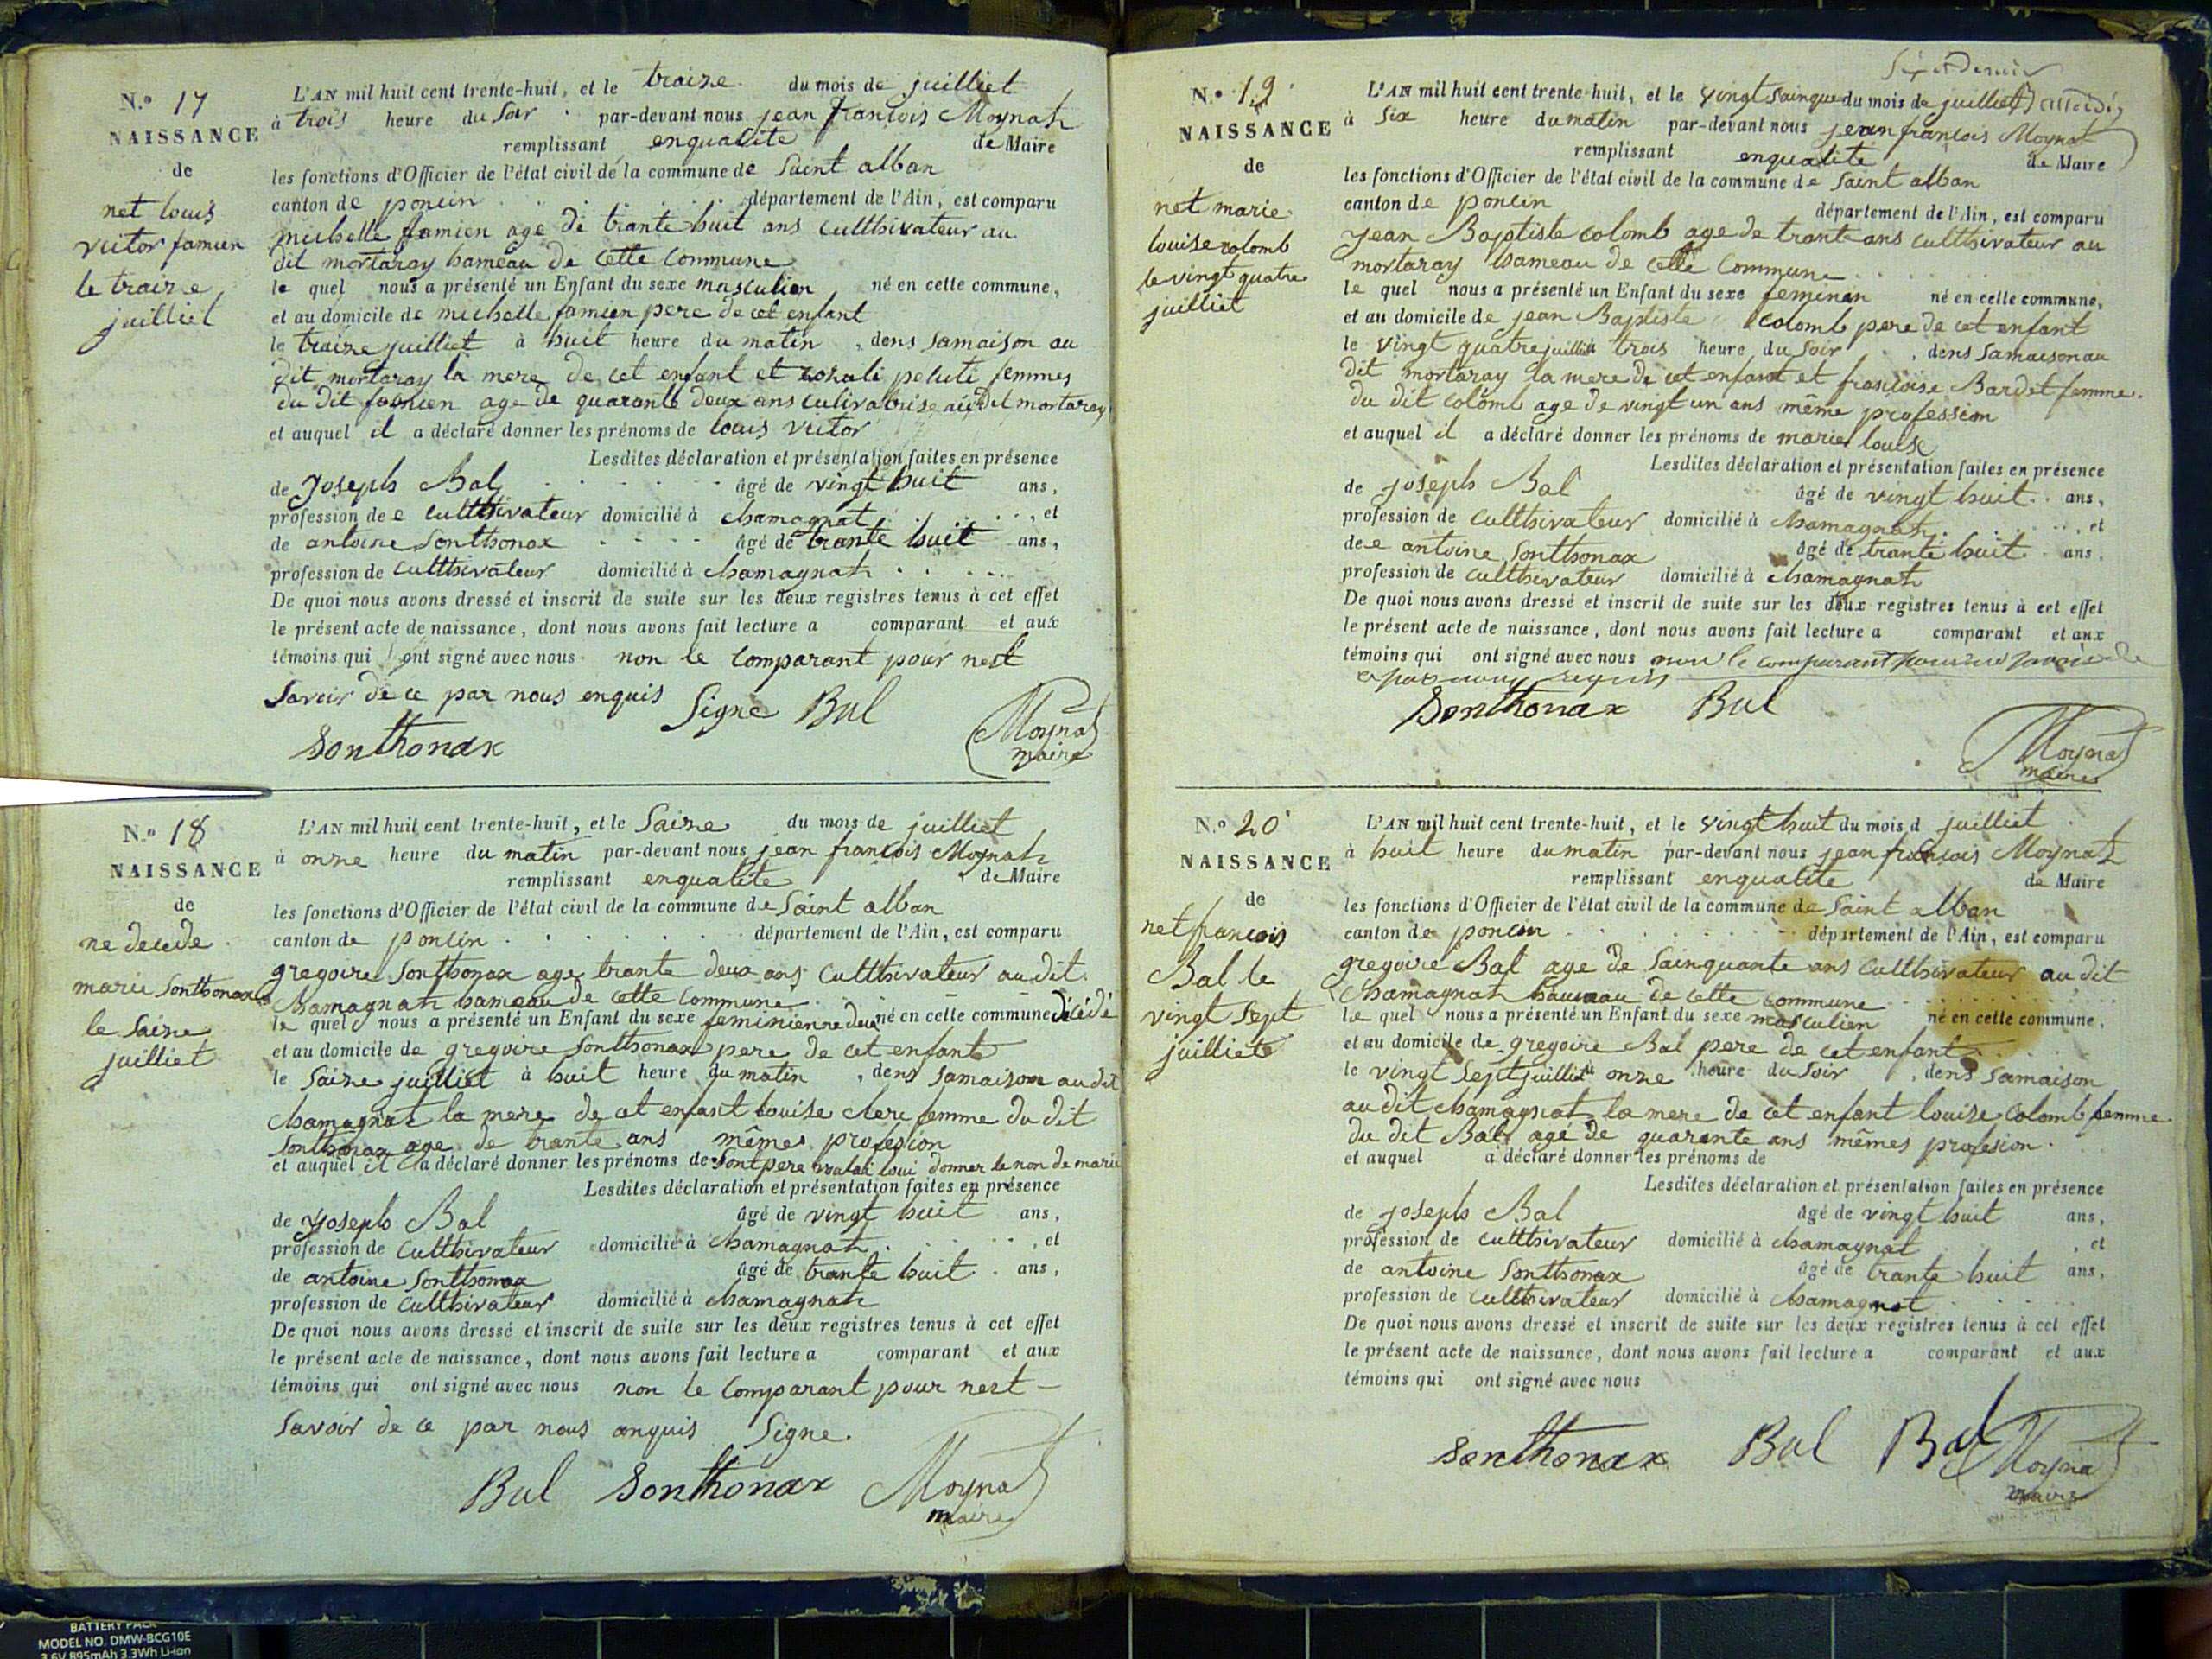 N.o 17
NAISSANCE
de
net louis
victor famien
le traize
juilliet
L'AN mil huit cent trente-huit, et le traize du mois de juilliet
à trois heure du Soir par-devant nous jean francois Moynat
remplissant enqualite de Maire
les fonctions d'Officier de l'état civil de la commune de Saint alban
canton de poncin département de l'Ain, est comparu
michelle famien age de trante huit ans cultthivateur au
dit mortaray hameau de cette commune
le quel nous a présenté un Enfant du sexe masculien né en cette commune,
et au domicile de michelle famien pere de cet enfant
le traize juilliet à huit heure du matin, dens samaison au
dit mortaray la mere de cet enfant et rosali peluti femmes
du dit famien age de quarante deux ans culivatrise au dit mortaray
et auquel il a déclaré donner les prénoms de louis victor
Lesdites déclaration et présentation faites en présence
de Joseph Bal âgé de vingt huit ans,
profession de e cultthivateur domicilié à chamagnat, et
de antoine Sontthonax âgé de trante huit ans,
profession de cultthivateur domicilié à chamagnat
De quoi nous avons dressé et inscrit de suite sur les deux registres tenus à cet effet
le présent acte de naissance, dont nous avons fait lecture a comparant et aux
témoins qui ont signé avec nous non le comparant pour nest
Savoir de ce par nous enquis Signe Bal
Sonthonax Moynat
maire
N.o 18
NAISSANCE
de
ne decede
marie Sontthonax
le Saize
juilliet
L'AN mil huit cent trente-huit, et le Saize du mois de juilliet
à onze heure du matin par-devant nous jean francois Moynat
remplissant enqualite de Maire
les fonctions d'Officier de l'état civil de la commune de Saint alban
canton de poncin département de l'Ain, est comparu
gregoire Sontthonax age trante deux ans cultthivateur au dit
Chamagnat hameau de cette commune
le quel nous a présenté un Enfant du sexe feminienne né en cette commune décédé
et au domicile de gregoire Sontthonax pere de cet enfant
le Saize juilliet à huit heure du matin, dens samaison au dit
chamagnat la mere de cet enfant louise clerc femme du dit
Sontthonax age de trante ans mêmes profesion
et auquel il a déclaré donner les prénoms de Sont pere voulai loui donner le non de marie
Lesdites déclaration et présentation faites en présence
de Joseph Bal âgé de vingt huit ans,
profession de cultthivateur domicilié à chamagnat, et
de antoine Sontthonax âgé de trante huit ans,
profession de cultthivateur domicilié à chamagnat
De quoi nous avons dressé et inscrit de suite sur les deux registres tenus à cet effet
le présent acte de naissance, dont nous avons fait lecture a comparant et aux
témoins qui ont signé avec nous non le comparant pour nest
Savoir de ce par nous anquis Signe.
Bal Sonthonax Moynat
maire
N.o 19
NAISSANCE
de
net marie
louise colomb
le vingt quatre
juilliet
L'AN mil huit cent trente-huit, et le vingt sainque du mois de juilliet
à Six heure du matin par-devant nous jean francois Moynat
remplissant enqualite de Maire
les fonctions d'Officier de l'état civil de la commune de Saint alban
canton de poncin département de l'Ain, est comparu
jean Baptiste colomb age de trante ans cultthivateur au
mortaray hameau de cette commune
le quel nous a présenté un Enfant du sexe feminin né en cette commune,
et au domicile de jean Baptiste colomb pere de cet enfant
le vingt quatre juilliet à trois heure du Soir, dens Samaison au
dit mortaray la mere de cet enfant et francoise Bardet femme
du dit colomb age de vingt un ans même profession
et auquel il a déclaré donner les prénoms de marie louise
Lesdites déclaration et présentation faites en présence
de joseph Bal âgé de vingt huit ans,
profession de cultthivateur domicilié à chamagnat, et
de e antoine Sontthonax âgé de trante huit ans,
profession de cultthivateur domicilié à chamagnat
De quoi nous avons dressé et inscrit de suite sur les deux registres tenus à cet effet
le présent acte de naissance, dont nous avons fait lecture a comparant et aux
témoins qui ont signé avec nous non le comparant pour ne savoir de
ce par nous requis
Sonthonax Bal
Moynat
maire
N.o 20
NAISSANCE
de
net francois
Bal le
vingt Sept
juilliete
L'AN mil huit cent trente-huit, et le vingt huit du mois d juilliet
à huit heure du matin par-devant nous jean francois Moynat
remplissant enqualite de Maire
les fonctions d'Officier de l'état civil de la commune de Saint alban
canton de poncin département de l'Ain, est comparu
gregoire Bal age de Sainquante ans cultthivateur au dit
Chamagnat hameau de cette commune
le quel nous a présenté un Enfant du sexe masculien né en cette commune,
et au domicile de gregoire Bal pere de cet enfant
le vingt Sept juilliet à onze heure du Soir, dens samaison
au dit chamagnat la mere de cet enfant louise Colomb femme
du dit Bal agé de quarante ans mêmes profesion
et auquel a déclaré donner les prénoms de
Lesdites déclaration et présentation faites en présence
de joseph Bal âgé de vingt huit ans,
profession de cultthivateur domicilié à chamagnat, et
de antoine Sontthonax âgé de trante huit ans,
profession de cultthivateur domicilié à chamagnat
De quoi nous avons dressé et inscrit de suite sur les deux registres tenus à cet effet
le présent acte de naissance, dont nous avons fait lecture a comparant et aux
témoins qui ont signé avec nous
Sonthonax Bal Bal Moynat
maire
BATTERY PACK
MODEL NO. DMW-BCG10E
3.6V 895mAh 3.3Wh Li-ion